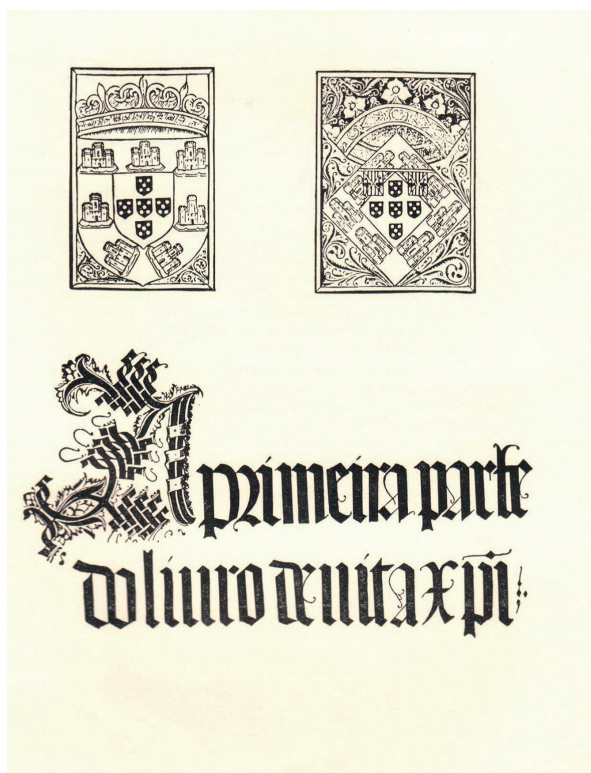 A primeira parte
do liuro de uita xp̄i